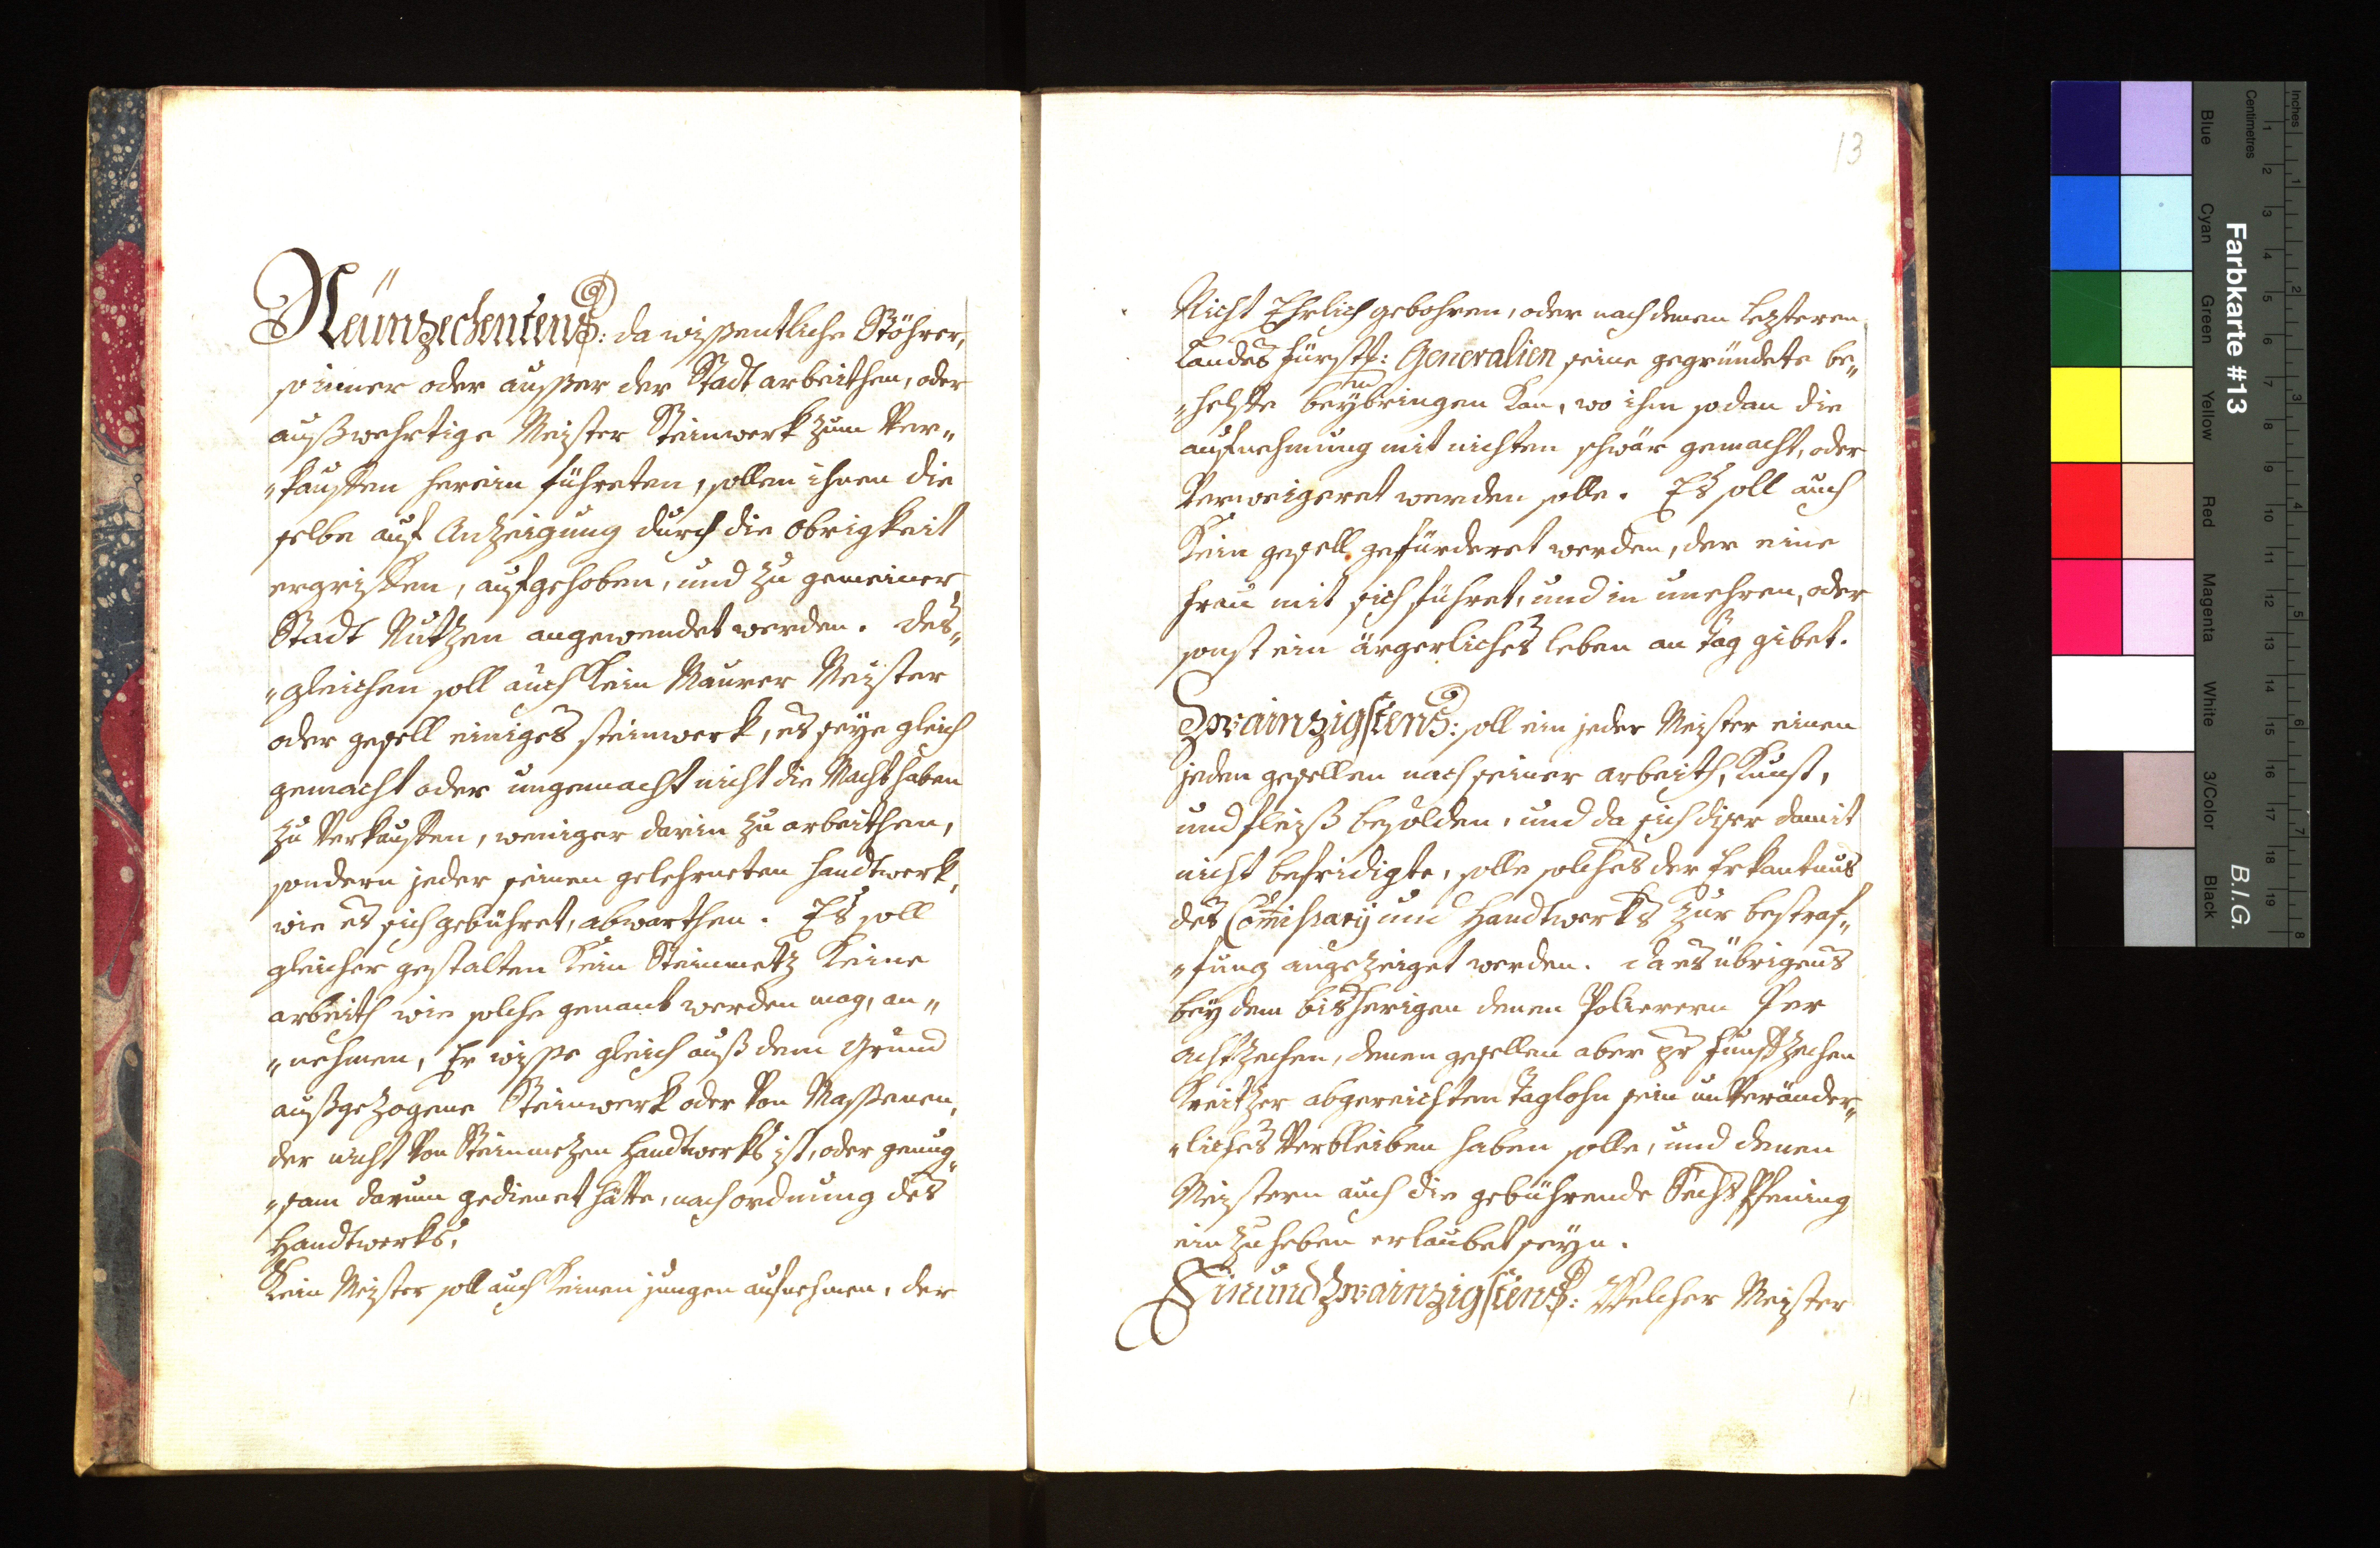 Neünzechentens: da wißentliche Stöhrer,
so inner oder ausser der Stadt arbeithen, oder
außwehrtige Meister Steinwerk zum Ver„
„kauffen herein führeten, sollen ihnen die
selbe auf Anzeigung durch die obrigkeit
ergriffen, aufgehoben, und zu gemeiner
Stadt Nutzen angewendet werden. des„
„gleichen soll auch kein Maurer Meister
oder gesell einiges steinwerk, es seye gleich
gemacht oder ungemacht nicht die Macht haben
zu Verkauffen, weniger darin zu arbeithen,
sondern jeder seinen gelehrneten handtwerk,
wie es sich gebühret, abwarthen. Es soll
gleicher gestalten kein Steinmetz keine
arbeith wie solche genant werden mag, an„
„nehmen, Er wisse gleich auß dem Grund
außgezogene Steinwerk oder Von Massenen,
der nicht Von Steinmetzen Handtwerks ist, oder genug„
„sam darum gedienet hätte, nach ordnung des
Handtwerks.
Kein Meister soll auch keinen jungen aufnehmen, der
13
Nicht Ehrlich gebohren, oder nach denen letzteren
Landes fürstl: Generalien seine gegründete be„
„helffe beybringen kan, wo ihm sodan die
aufnehmung mit nichten schwär gemacht, oder
Verweigeret werden solle. Es soll auch
Kein gesell gefürderet werden, der eine
Frau mit sich führet, und in unehren, oder
sonst ein ärgerliches leben an Tag gibet.
Zwainzigstens: soll ein jeder Meister einen
jeden gesellen nach seiner arbeith, Kunst,
und fleiß besolden, und da sich diser damit
nicht befridigte, solle solches der Erkantnus
des Comissary und Handtwerks zur bestraf„
„fung angezeiget werden. da es übrigens
bey dem bisherigen denen Polierern Per
achtzechen, denen gesellen aber pr funffzechen
Kreitzer abgereichten Taglohn sein unVeränder„
„liches Verbleiben haben solle, und denen
Meistern auch die gebührende Sechs Pfening
einzuheben erlaubet seyn.
Einund Zwainzigstens: Welcher Meister
Farbkarte #13
B.I.G.
Inches
Centimetres
Blue
Cyan
Green
Yellow
Red
Magenta
White
3/Color
Black
1 2 3 4 5 6 7 8 9 10 11 12 13 14 15 16 17 18 19
1 2 3 4 5 6 7 8